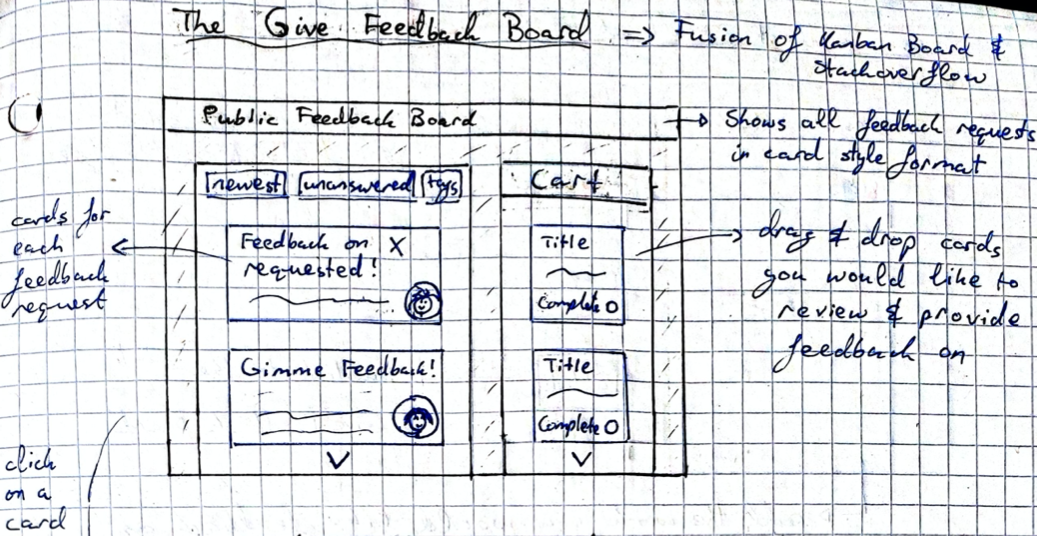 The Give Feedback Board => Fusion of Kanban Board &
Stackoverflow
Public Feedback Board
Shows all feedback requests
in card style format
newest unanswered tags
Cart
cards for
each
feedback
request
Feedback on X
requested!
Title
Complete O
drag & drop cards
you would like to
review & provide
feedback on
Gimme Feedback!
Title
Complete O
click
on a
card